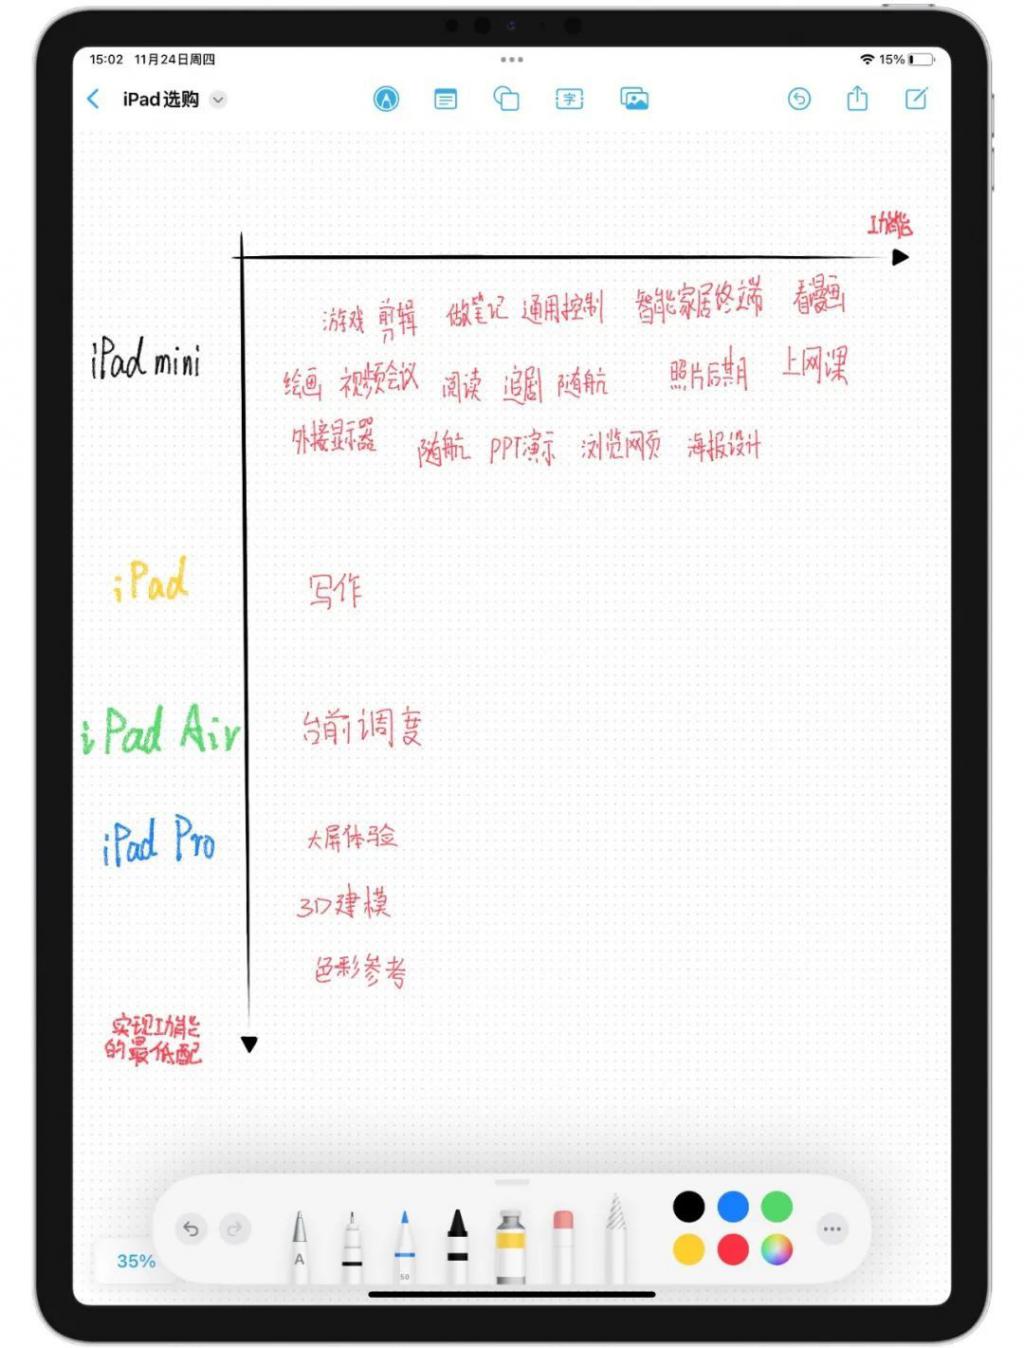 15:02 11月24日周四
15%
iPad选购
功能
游戏 剪辑 做笔记 通用控制 智能家居终端 看漫画
iPad mini
绘画 视频会议 阅读 追剧 随航 照片后期 上网课
外接显示器 随航 PPT演示 浏览网页 海报设计
iPad 写作
iPad Air 台前调度
iPad Pro 大屏体验
3D建模
色彩参考
实现功能
的最低配
35%
A
50